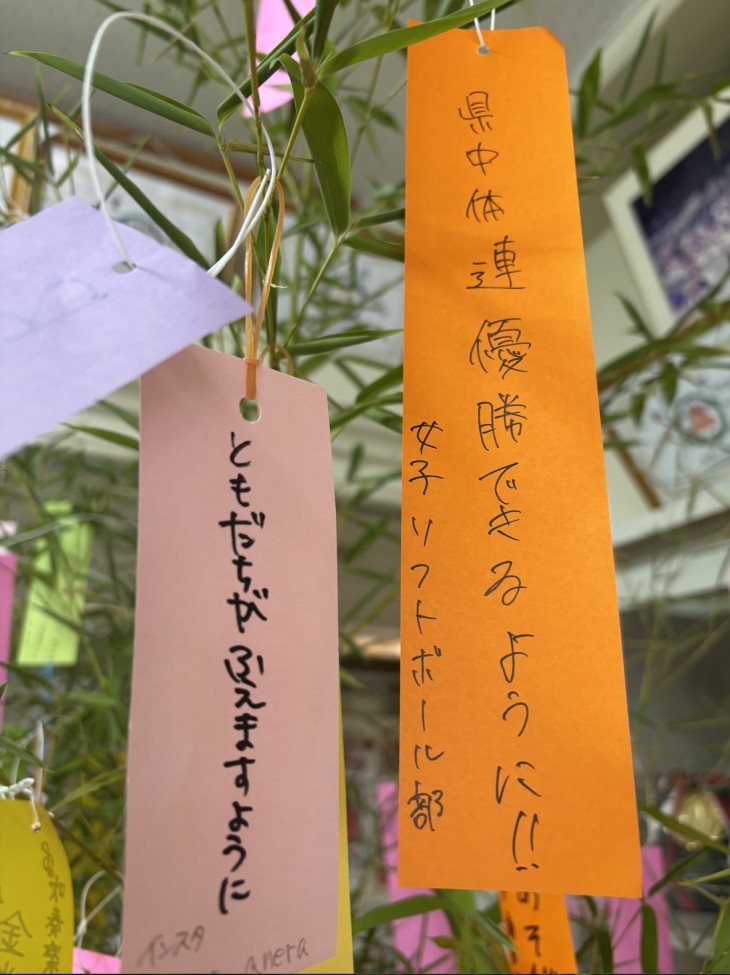 県中体連優勝できるように!!
女子ソフトボール部
ともだちがふえますように
インスタ
anera
吹奏楽
金